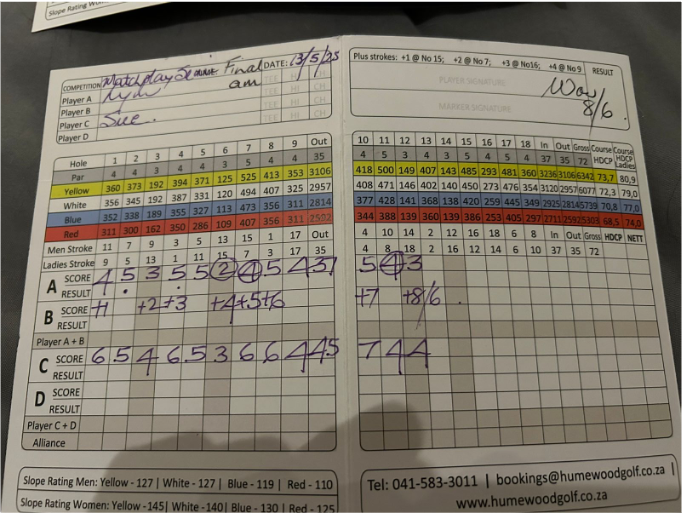 Slope Rating Wom
COMPETITION Matchplay Semi Final DATE: 13/5/25
am
Player A Lyn TEE HI CH
Player B TEE HI CH
Player C Sue. TEE HI CH
Player D
Hole 1 2 3 4 5 6 7 8 9 Out
Par 4 4 3 4 4 3 5 4 4 35
Yellow 360 373 192 394 371 125 525 413 353 3106
White 356 345 192 387 331 120 494 407 325 2957
Blue 352 338 189 355 327 113 473 356 311 2814
Red 311 300 162 350 286 109 407 356 311 2592
Men Stroke 11 7 9 3 5 13 15 1 17 Out
Ladies Stroke 9 5 13 1 11 15 7 3 17 35
A SCORE 4 5 3 5 5 2 4 5 4 37
RESULT
B SCORE +1 +2 +3 +4 +5 +6
RESULT
Player A + B
C SCORE 6 5 4 6 5 3 6 6 4 45
RESULT
D SCORE
RESULT
Player C + D
Alliance
Slope Rating Men: Yellow - 127 | White - 127 | Blue - 119 | Red - 110
Slope Rating Women: Yellow -145| White -140| Blue - 130 | Red - 125
Plus strokes: +1 @ No 15; +2 @ No 7; +3 @ No16; +4 @ No 9 RESULT
PLAYER SIGNATURE
Won
8/6.
MARKER SIGNATURE
10 11 12 13 14 15 16 17 18 In Out Gross Course HDCP Course HDCP Ladies
4 5 3 4 3 5 4 5 4 37 35 72
418 500 149 407 143 485 293 481 360 3236 3106 6342 73,7 80,9
408 471 146 402 140 450 273 476 354 3120 2957 6077 72,3 79,0
377 428 141 368 138 420 259 445 349 2925 2814 5739 70,8 77,0
344 388 139 360 139 386 253 405 297 2711 2592 5303 68,5 74,0
4 10 14 2 12 16 18 6 8 In Out Gross HDCP NETT
4 8 18 2 16 12 14 6 10 37 35 72
5 4 3
+7 +8/6 .
7 4 4
Tel: 041-583-3011 | bookings@humewoodgolf.co.za |
www.humewoodgolf.co.za